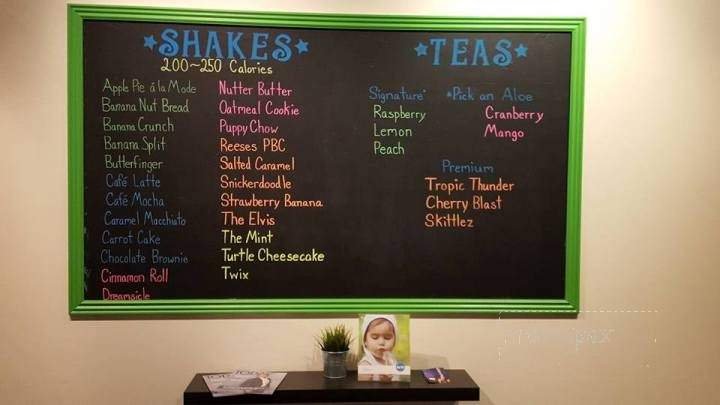 ★SHAKES★
200~250 Calories
Apple Pie á la Mode
Banana Nut Bread
Banana Crunch
Banana Split
Butterfinger
Café Latte
Café Mocha
Caramel Macchiato
Carrot Cake
Chocolate Brownie
Cinnamon Roll
Dreamsicle
Nutter Butter
Oatmeal Cookie
Puppy Chow
Reeses PBC
Salted Caramel
Snickerdoodle
Strawberry Banana
The Elvis
The Mint
Turtle Cheesecake
Twix
★TEAS★
Signature*
Raspberry
Lemon
Peach
*Pick an Aloe
Cranberry
Mango
Premium
Tropic Thunder
Cherry Blast
Skittlez